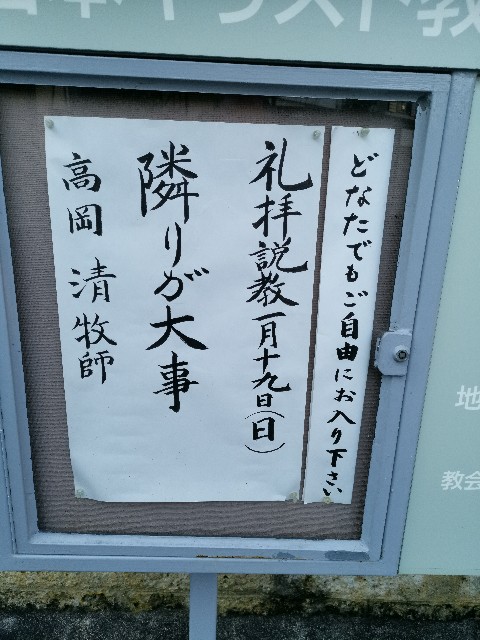 日本キリスト教
どなたでもご自由にお入り下さい
礼拝説教 一月十九日(日)
隣りが大事
高岡 清牧師
地
教会